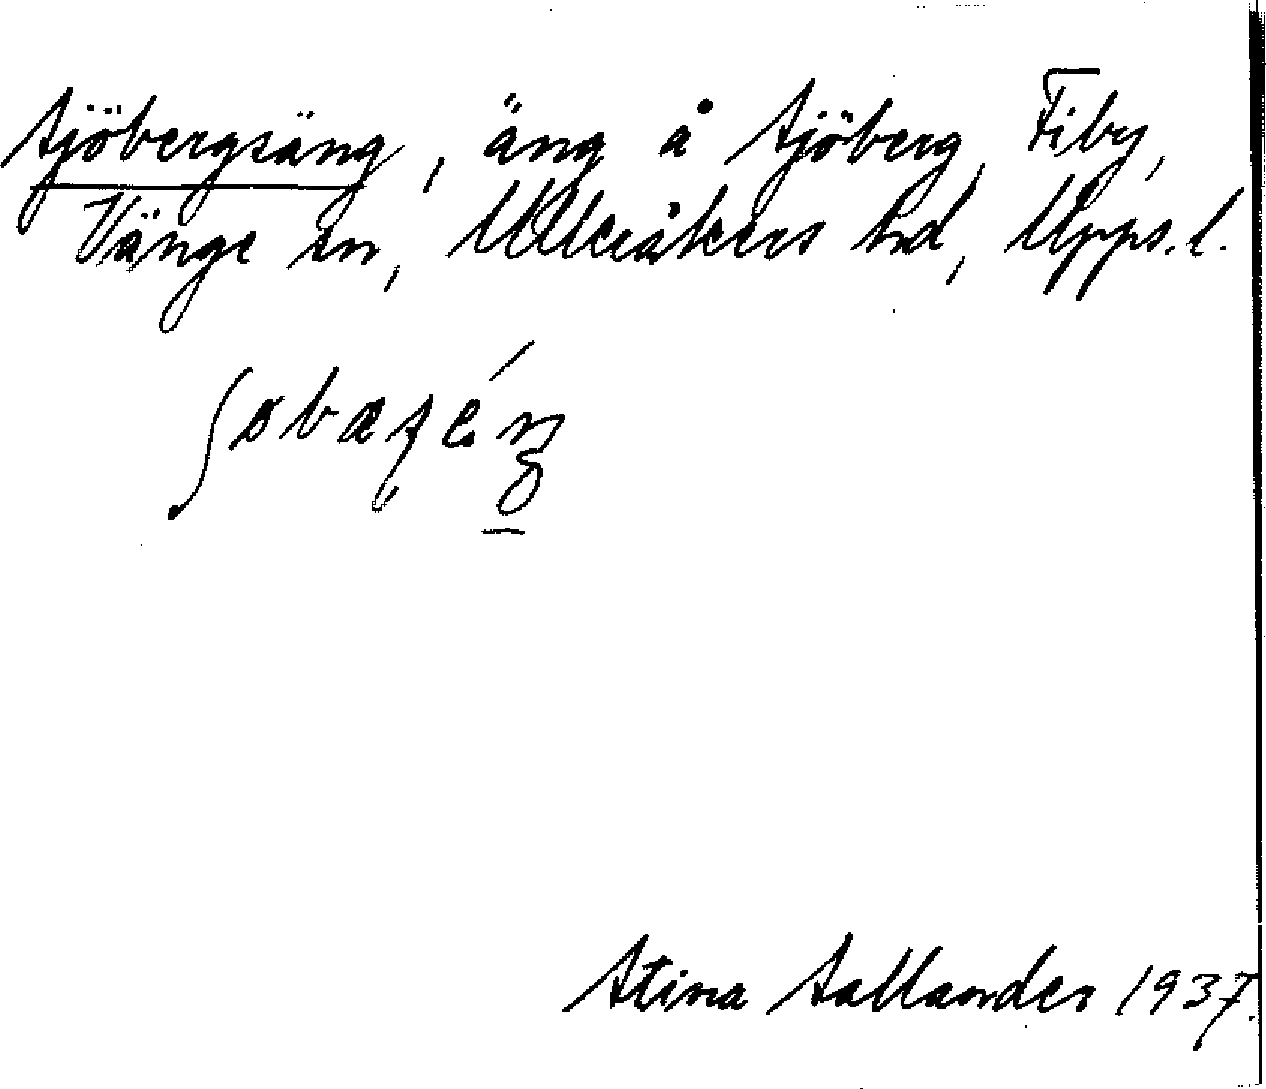 Sjöbergsäng, äng å Sjöberg, Fiby,
Vänge sn, Ulleråkers hd, Upps. l.
Stina Sallander 1937.